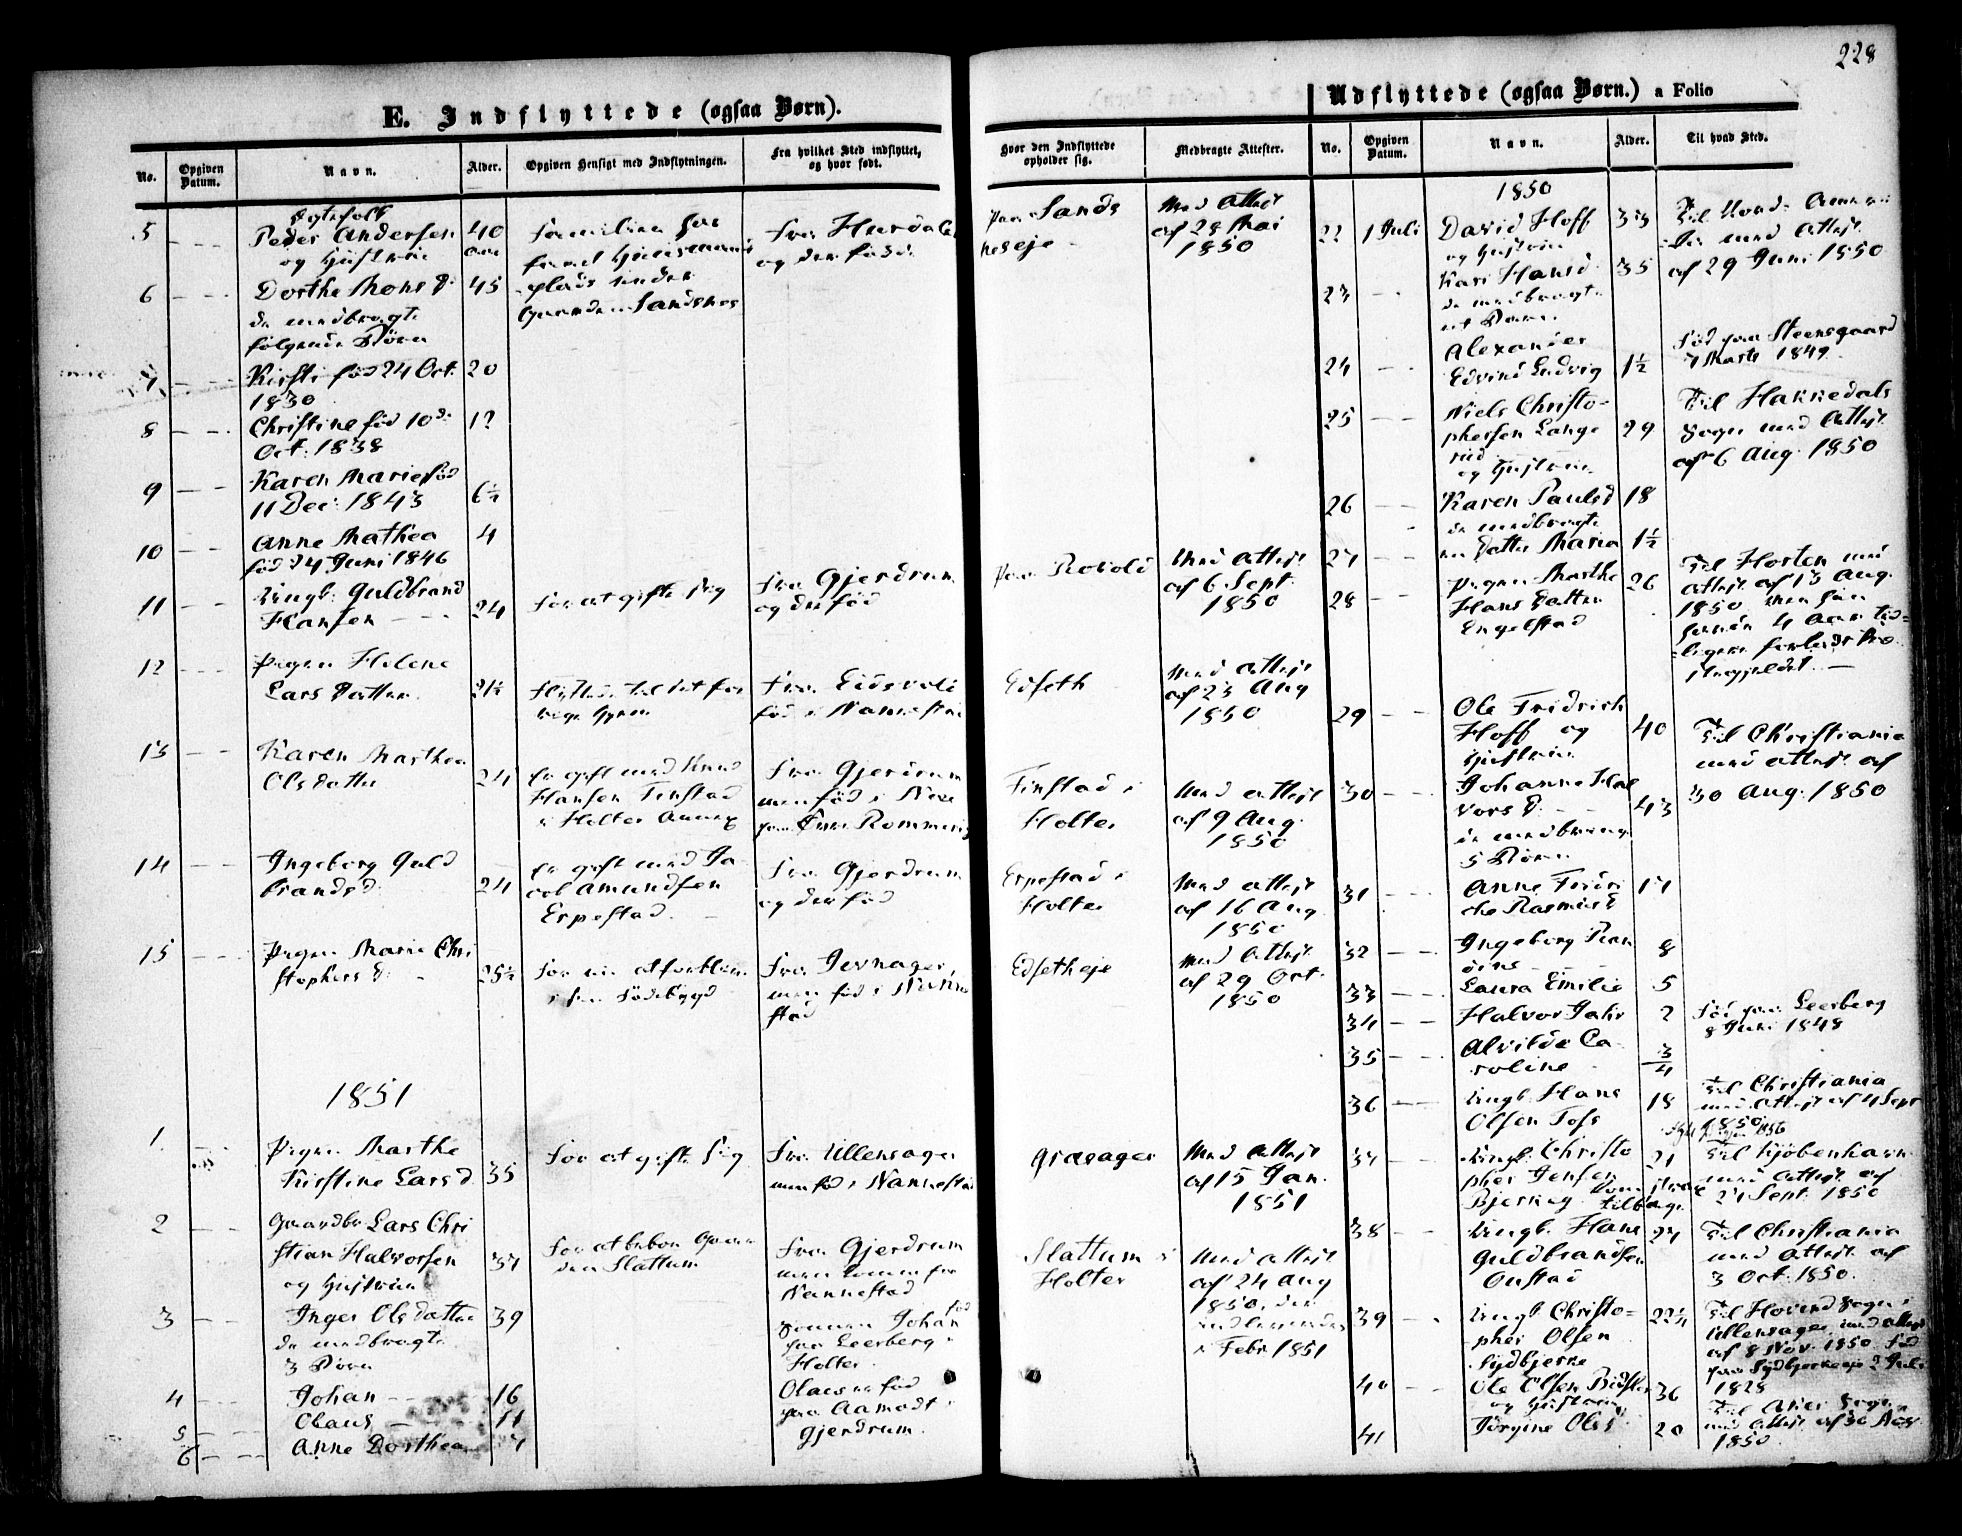 228
E. Indflyttede (ogsaa Børn).
No.
Opgiven Datum.
Navn.
Alder.
Opgiven Hensigt med Indflytningen.
Fra hvilket Sted indflyttet, og hvor født.
Hvor den Indflyttede opholder sig.
Medbragte Attester.
Udflyttede (ogsaa Børn.) a Folio
No.
Opgiven Datum.
Navn.
Alder.
Til hvad Sted.
5
Peder Andersen
og Hustrue
40
Familien har
Fra Hurdalen
og der fødde
paa Sands
neseje
Med Attest
af 28 Mai
1850
6
Dorthe Mons D.
de medbragte
følgende Børn
45
plads under
Gaarden Sandsnes
7
Kirsti fød 24 Oct.
1830
20
8
Christine fød 10de
Oct. 1838
12
9
Karen Marie fød
11 Dec: 1843
6½
10
Anne Mathea
fød 24 Juni 1846
4
11
Ungk. Guldbrand
Hansen
24
For at gifte sig
Fra Gjerdrum
og der fød
paa Rovold
Med Attest
af 6 Sept.
1850
12
Pigen Helene
Lars Datter
Fra Eidsvold
fød i Nannestad
Edseth
Med Attest
af 23 Aug
1850
13
Karen Marthea
Olsdatter
24
er gift med Knud
Hansen Finstad
i Holter Annex
Fra Gjerdrum
men fød i Næs
paa Øvre Romerig
Finstad i
Holter
Med Attest
af 9 Aug.
1850
14
Ingeborg Guld
brandsd.
24
er gift med Ja-
cob Amundsen
Erpestad.
Fra Gjerdrum
og der fød
Erpestad i
Holter
Med Attest
af 16 Aug
1850
15
Pigen Marie Chri
stophers D.
25½
For at forblive
i sin Fødebygd
Fra Jevnager,
men fød i Nanne
stad
Edsetheje
Med Attest
af 29 Oct.
1850
1851
1
Pigen Marthe
Kirstine Larsd.
35
For at gifte sig
Fra Ullensager
men fød i Nannestad
Græsager
Med Attest
af 15 Jan.
1851
2
Gaardbr. Lars Chri
stian Halvorsen
og Hustrue
37
For at beboe Gaar
den Slattum
Fra Gjerdrum
Nannestad
Slattum i
Holter
Med Attest
af 24 Aug
1850, der
indleveredes
i Febr. 1851
3
Inger Olsdatter
de medbragte
3 Børn
39
Sønnen Johan fød
paa Leerberg i
Holter.
4
Johan
16
Olaus er fød
paa Aamodt i
Gjerdrum
5
Olaus
11
6
Anne Dorthea
7
1850
22
1 Juli
David Hoff
og Hustrue
33
med Attest
af 29 Juni 1850
23
Kari Hansd.
de medbragte
et Barn
35
24
Alexander
Edvind Ludvig
1½
Fød paa Steensgaard
7 Marts 1849.
25
Niels Christo-
phersen Lange
rud
og Hustrue
29
Til Hakkedals
Sogn med Attest
af 6 Aug. 1850
26
Karen Paulsd
de medbragte
18
27
en Datter Maria
1½
28
Pigen Marthe
Hans Datter
Engelstad
26
Til Horten med
Attest af 13 Aug.
1850 men han
4 Aar tid-
ligere forladt Præ-
stegjeldet.
29
Ole Fridrich
Hoff og
Hustrue
40
Til Christiania
med Attest af
30 Aug. 1850
30
Johanne Hal
vors D.
de medbragte
5 Børn
43
31
Anne Fridri
che Rasmine
17
32
Ingeborg Pean
dine
8
33
Laura Emilie
5
34
Halvor Jahr
2
Fød paa Leerberg
8 Juni 1848
35
Alvilde Ca-
roline
¾
36
Ungk. Hans
Olsen Tofs
18
Til Christiania
med Attest af 4 Sept
1850
37
Ungk. Christo
pher Jensen
Bjerkeg
tilbage
21
Til Kjøbenhavn
med Attest af
27 Sept. 1850
38
Ungk. Hans
Guldbrandsen
Onstad
27
Til Christiania
med Attest af
3 Oct. 1850.
39
Ungk. Christo-
pher Olsen
Sydbjerke
Til Hovind Sogn i
Ullensager med Attest
af 8 Nov. 1850. Fød
paa Sydbjerkeeje 2 Juli
1828
40
Ole Olsen
og Hustrue
36
Til Asker Sogn
med Attest af 30 Nov
1850.
41
Jørgine Ols D
20